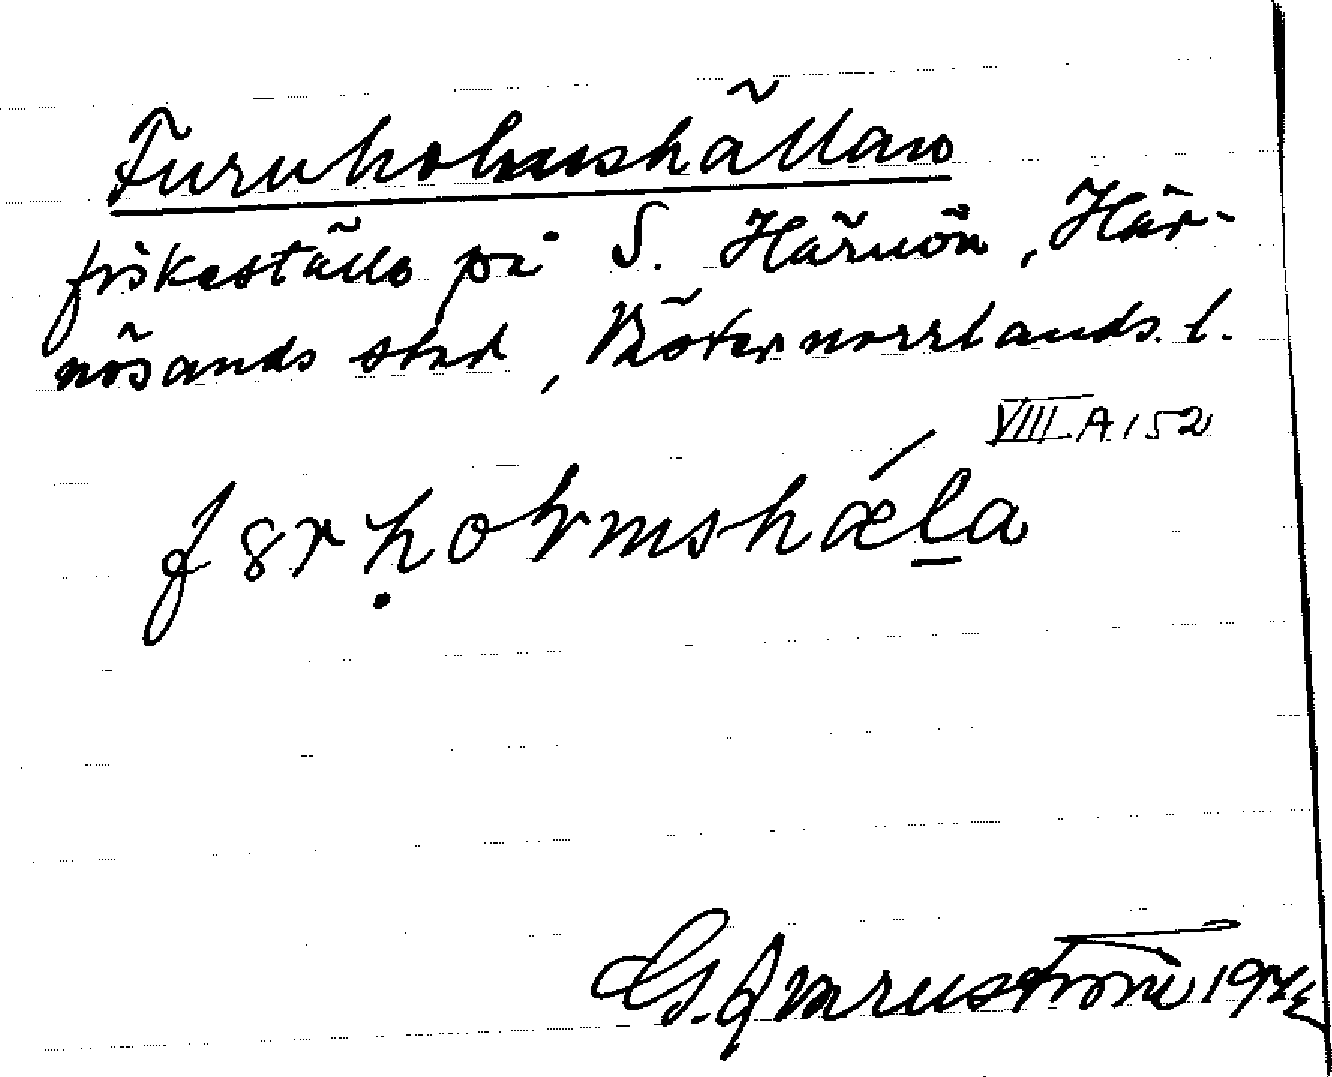 Furuholmshällan
fiskeställe på S. Härnön, Här-
nösands stad, Västernorrlands l.
VIII A 152
f8rḥolmshǽl̠a
G. Qvarnström 194